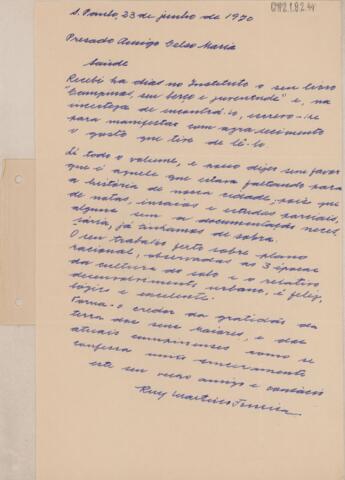 S. Paulo, 23 de junho de 1970
Presado Amigo Celso Maria
Saúde
Recebi ha dias no Instituto o seu livro
"Campinas, seu berço e juventude" e, na
incerteza de encontrá-lo, escrevo-lhe
para manifestar com agradecimento
o gosto que tive de lê-lo.
Li todo o volume, e posso dizer sem favor
que é aquele que estava faltando para
a história de nossa cidade, pois que
de notas, ensaios e estudos parciais,
alguns sem a documentação neces
sária, já andamos de sobra.
O seu trabalho feito sobre plano
racional, observadas as 3 épocas
da cultura do solo e o relativo
desenvolvimento urbano, é feliz,
lógico e excelente.
Torna-o credor da gratidão da
terra dos seus maiores, e dos
atuais campinenses como se
confessa muito sinceramente
este seu velho amigo e
Ruy Martins Ferreira